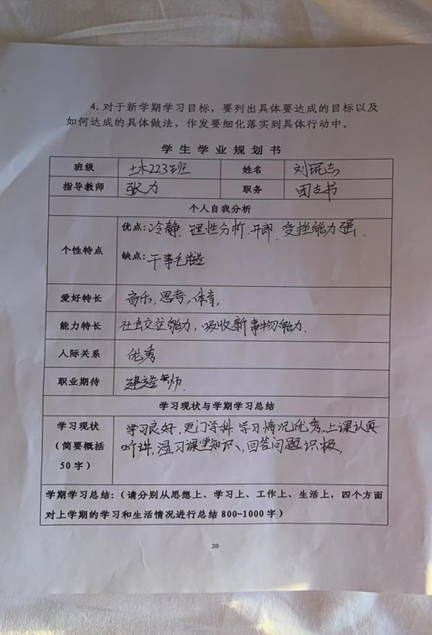 4. 对于新学期学习目标，要列出具体要达成的目标以及
如何达成的具体做法，作发要细化落实到具体行动中。
学生学业规划书
班级 土木223班 姓名 刘
指导教师 张力 职务 团支书
个人自我分析
个性特点
优点：冷静、理性分析、开郎、受挫能力强.
缺点：干事毛糙
爱好特长 音乐，思考，体育，
能力特长 社会交往能力，吸收新事物能力.
人际关系 优秀
职业期待 建造师.
学习现状与学期学习总结
学习现状
（简要概括
50 字）
学习良好，各门学科 学习情况优秀，上课认真
听讲，温习课堂知识、回答问题积极，
学期学习总结：（请分别从思想上、学习上、工作上、生活上，四个方面
对上学期的学习和生活情况进行总结 800-1000 字）
20